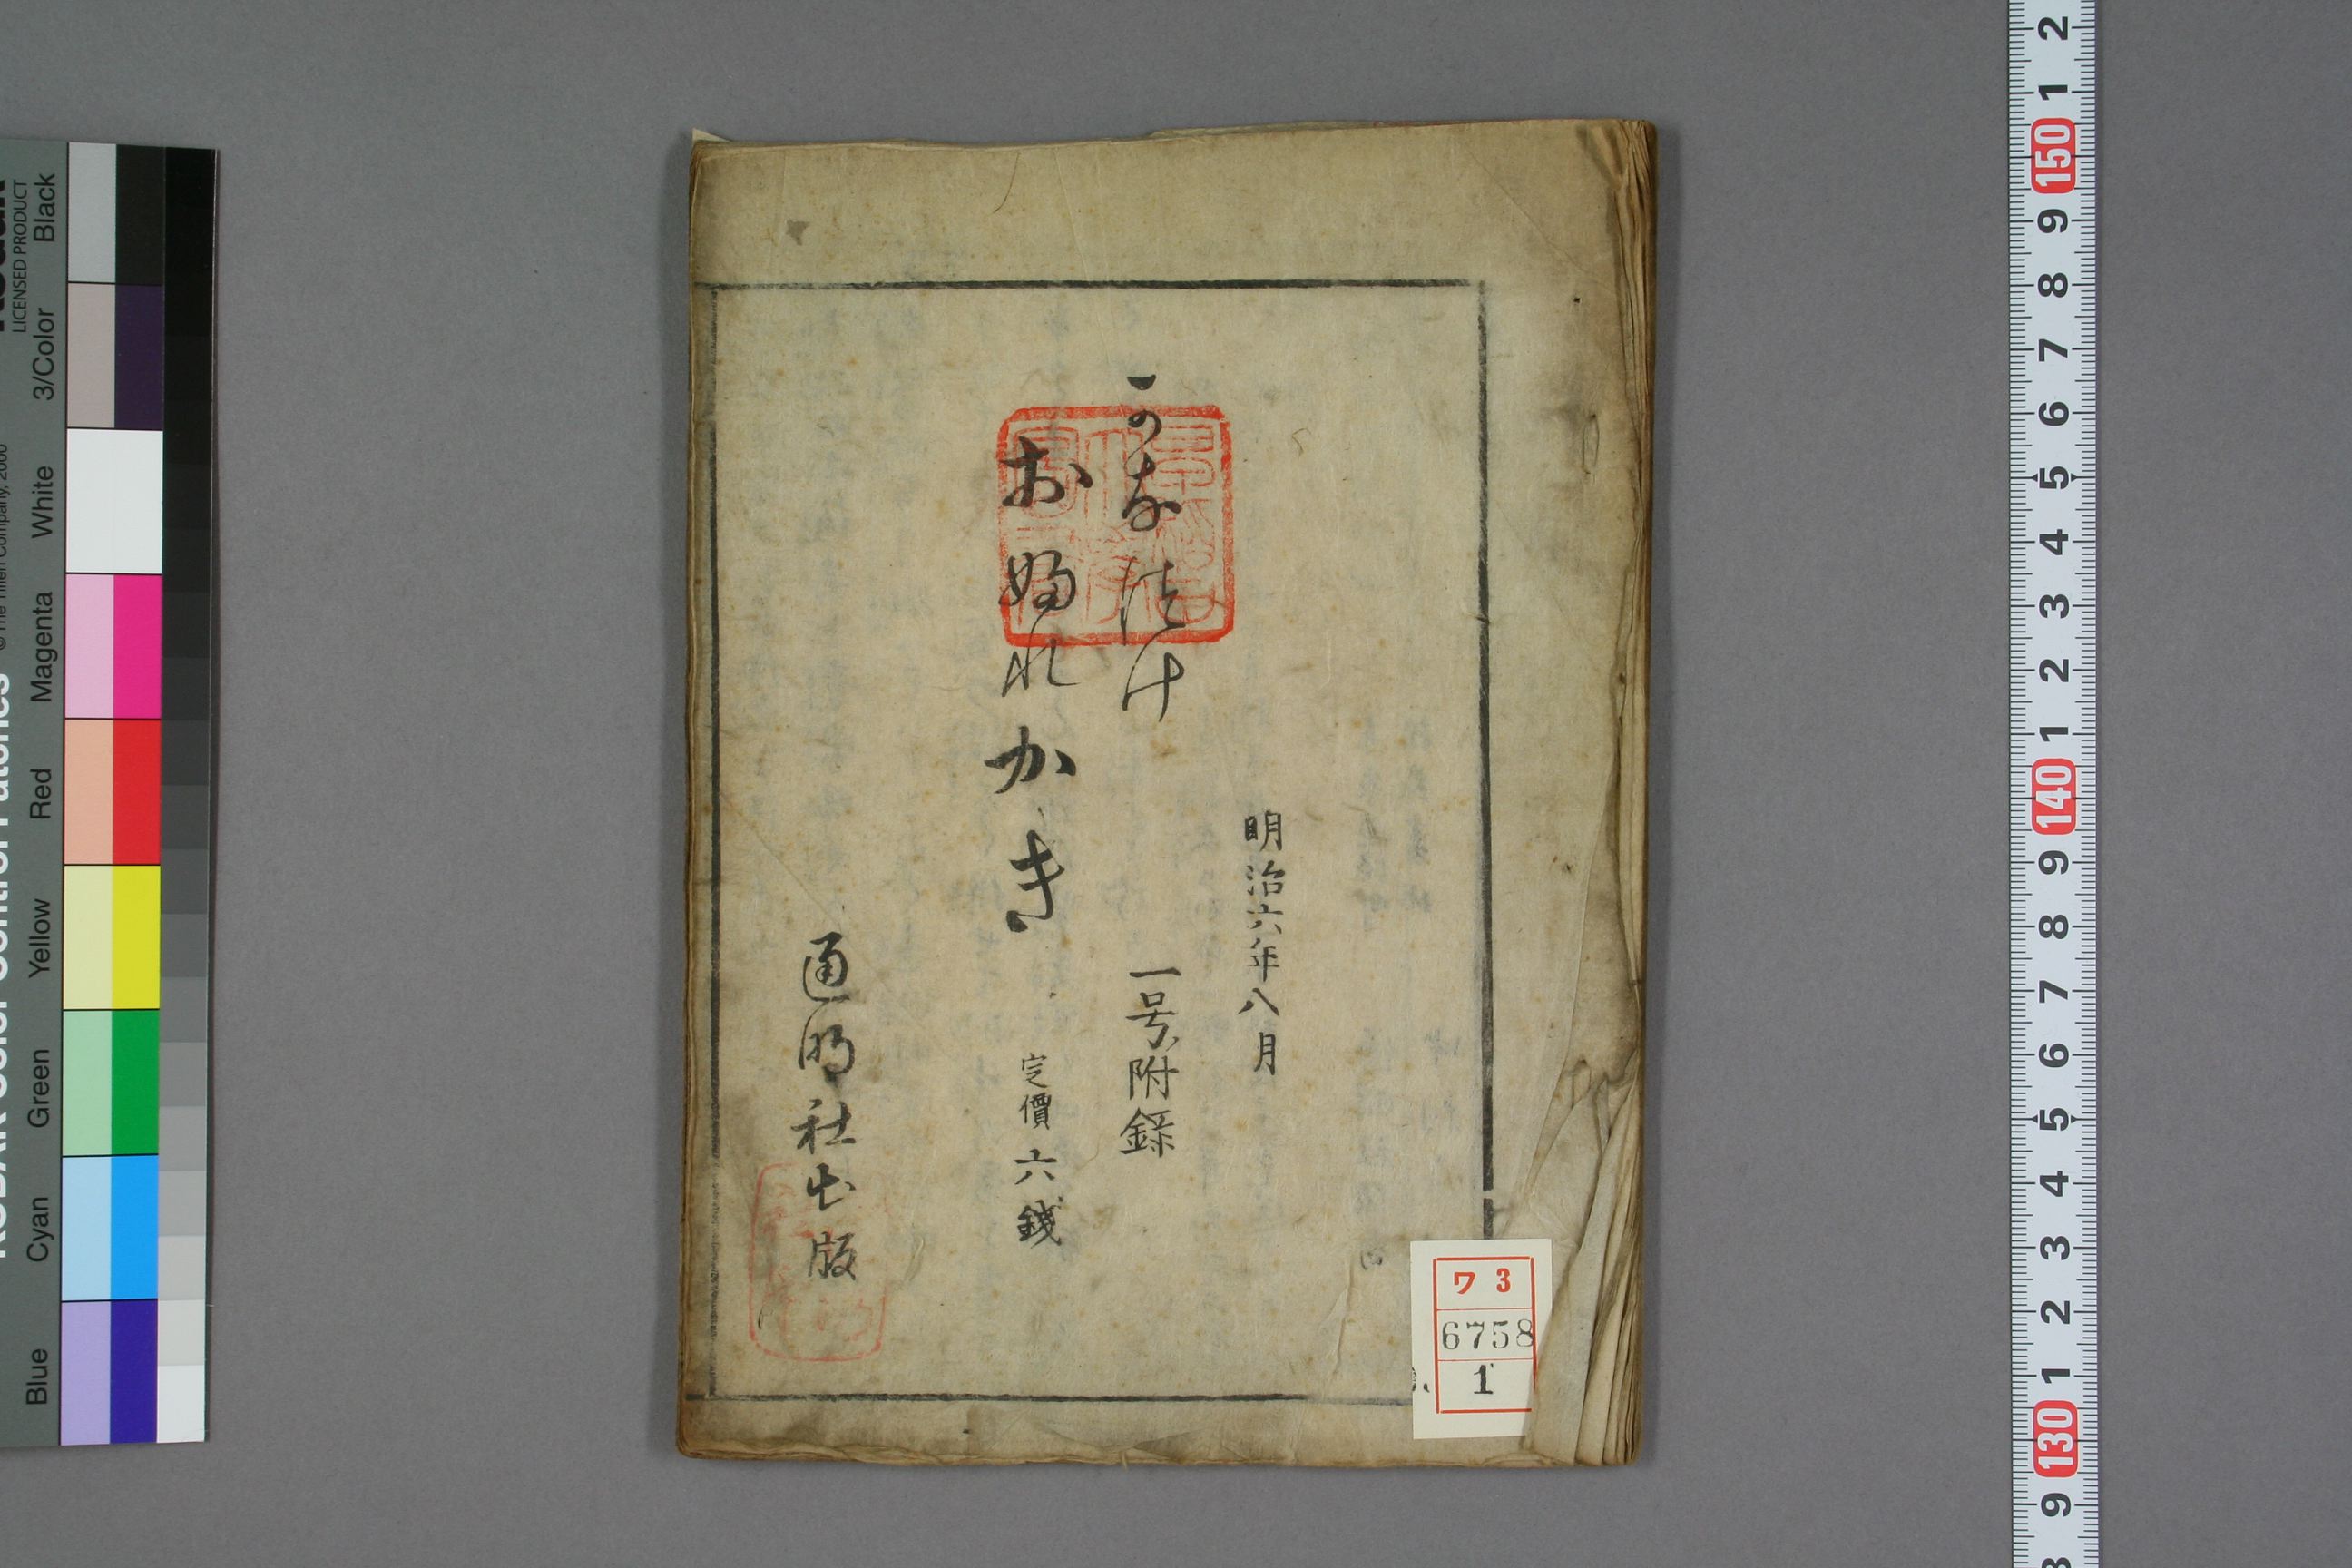 明治六年八月
かなつけ
一号附録
おふれかき
定價六錢
通明社出版
ワ 3
6758
1
LICENSED PRODUCT
Black
3/Color
White
Magenta
Red
Yellow
Green
Cyan
Blue
2
1
150
9
8
7
6
5
4
3
2
1
140
9
8
7
6
5
4
3
2
1
130
9
8